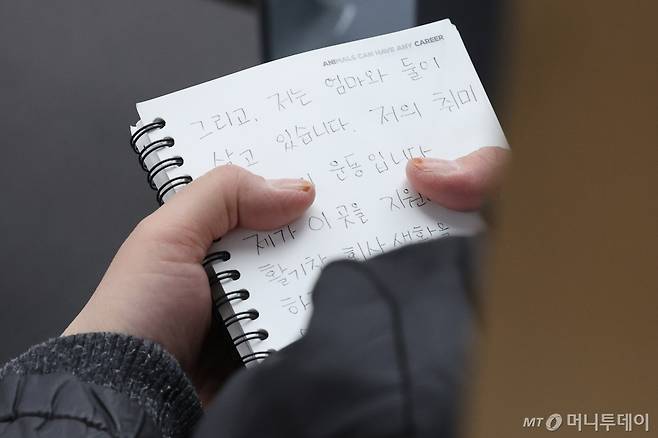 ANIMALS CAN HAVE ANY CAREER
그리고, 저는 엄마와 둘이
살고 있습니다. 저의 취미
운동입니다
제가 이 곳을 지원
활기찬 회사 생활을
하
MT 머니투데이